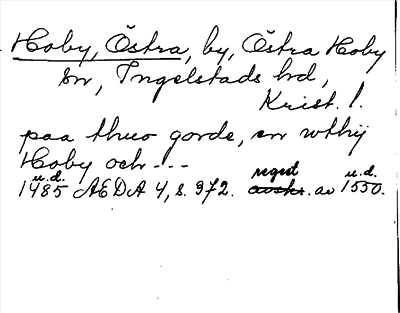 Hoby, Östra, by, Östra Hoby
sn, Ingelstads hd,
Krist. l.
paa thuo gorde, en wthij
Hoby och ---
u.d. regest u.d.
1485 AEDA 4, s. 372. avskr. av 1550.